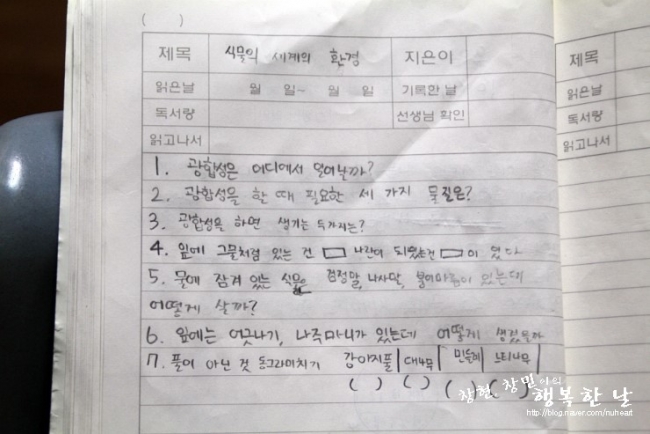 ( )
제목 식물의 세계의 환경 지은이 제목
읽은날 월 일~ 월 일 기록한 날 읽은날
독서량 선생님 확인 독서량
읽고나서 읽고나서
1. 광합성은 어디에서 일어날까?
2. 광합성을 할 때 필요한 세 가지 물질은?
3. 광합성을 하면 생기는 두가지는?
4. 잎에 그물처럼 있는 건 □ 나란이 되있는건 □이 있다
5. 물에 잠겨 있는 식물은 검정말, 나사말, 붕어마름이 있는데
어떻게 살까?
6. 잎에는 어긋나기, 마주나기가 있는데 어떻게 생겼을까
7. 풀이 아닌 것 동그라미치기 강아지풀 | 대나무 | 민들레 | 느티나무 |
( ) ( ) ( ) ( )
창현 창민이의
행복한 날
http://blog.naver.com/nuheart